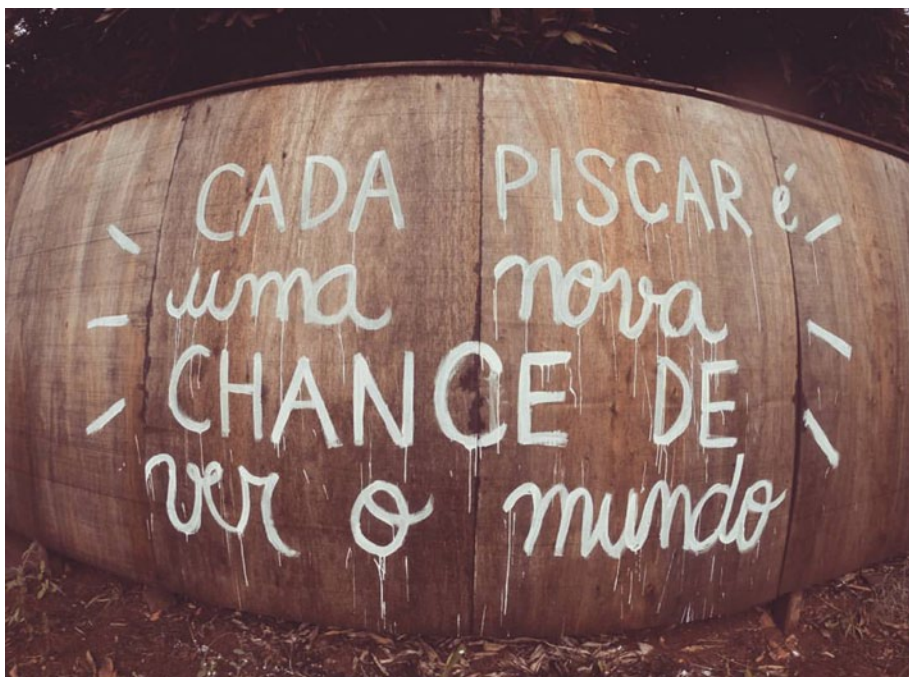 CADA PISCAR é
uma nova
CHANCE DE
ver o mundo